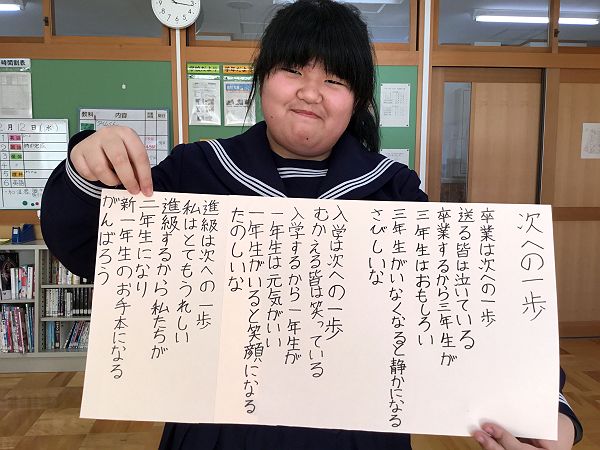 次への一歩
卒業は次への一歩
送る皆は泣いている
卒業するから三年生が
三年生はおもしろい
三年生がいなくなると静かになる
さびしいな
入学は次への一歩
むかえる皆は笑っている
入学するから一年生が
一年生は元気がいい
一年生がいると笑顔になる
たのしいな
進級は次への一歩
私はとてもうれしい
進級するから私たちが
二年生になり
新一年生のお手本になる
がんばろう
時間割表
2月12日(水)
教科
内容